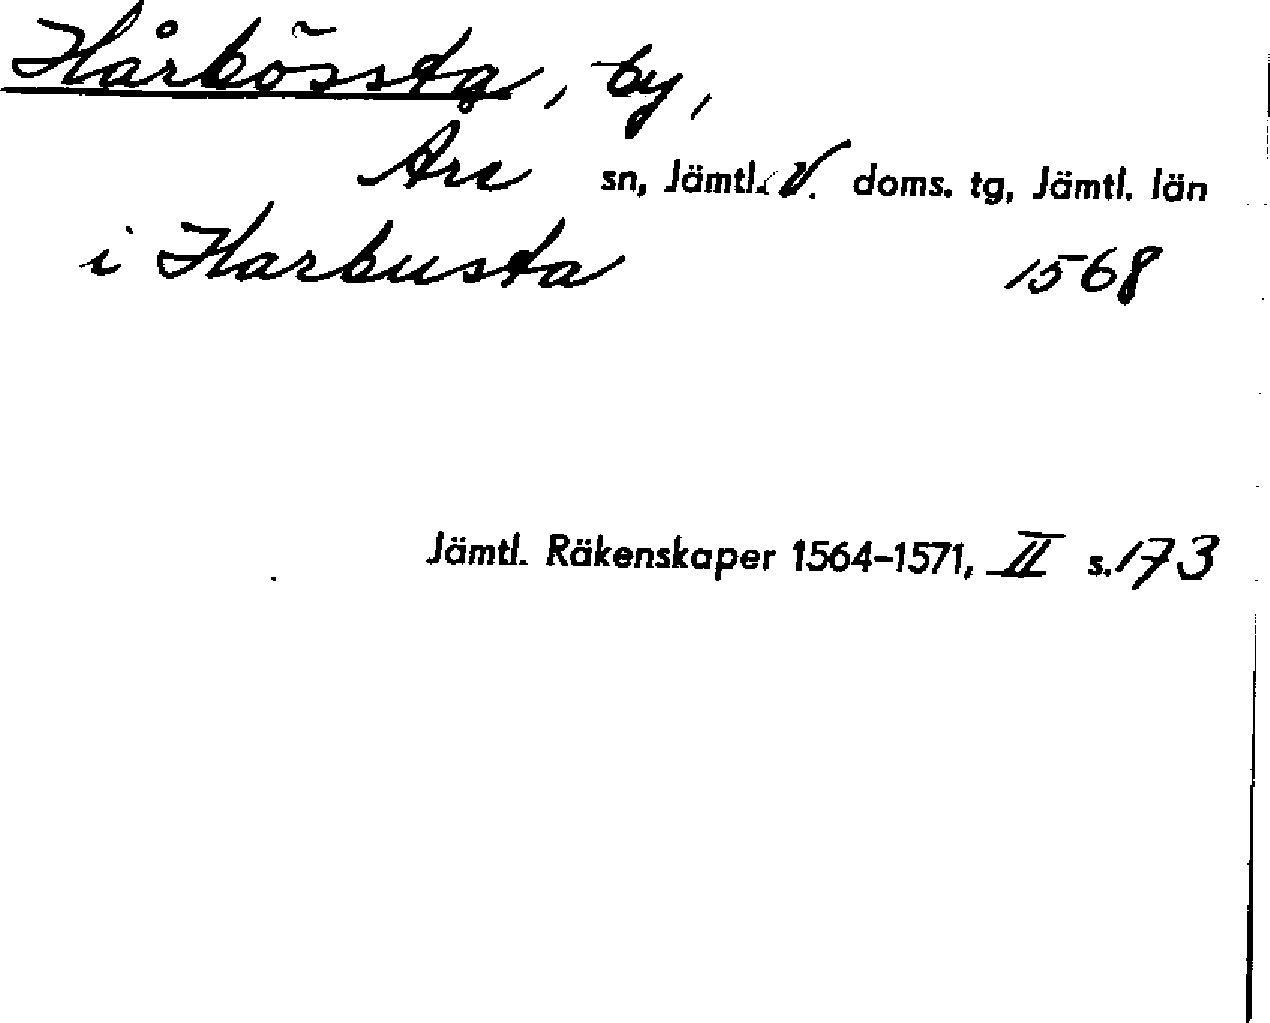 Hårbössta, by,
Åre sn, Jämtl. V. doms. tg, Jämtl. län
i Harbusta 1568
Jämtl. Räkenskaper 1564-1571, II s. 173